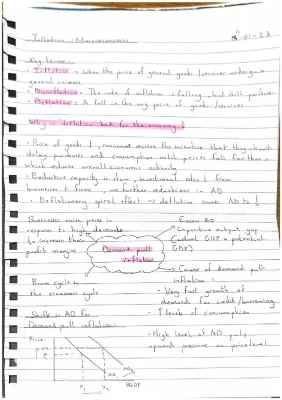 Inflation - Macroeconomics
11-01-23
Key terms:
• Inflation: When the price of general goods/services undergo a
general increase
• Disinflation: The rate of inflation is falling, but still positive
• Deflation: A fall in the avg price of goods/services
Why is deflation bad for the economy?
• Price of goods ↓, consumers receive the incentive that they should
delay purchases and consumption until prices fall further &
which reduces overall economic activity
• Productive capacity is slow, investment also ↓ from
businesses & firms, further reductions in AD
• Deflationary spiral effect → deflation causes AD to ↓
Businesses raise price in
response to high demand
to increase their
profit margin
Excess AD
→ positive output gap
(actual GDP > potential
GDP)
Demand pull
inflation
Boom cycle in
the economic cycle
→ Cause of demand pull
inflation:
- Very fast growth of
demand for credit/borrowing
- ↑ levels of consumption
Shifts in AD for
Demand pull inflation
• High level of AD puts
upward pressure on price level
Price
Y₁ Y₂
AD